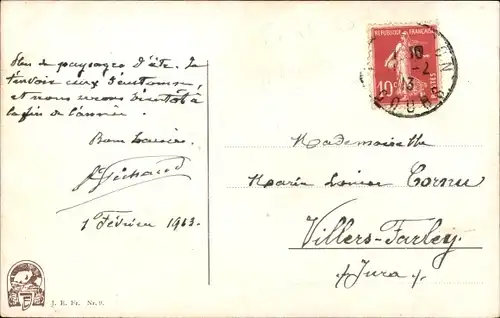 Plus de paysages d'été. Je
t'envoie ceux d'automne
et nous serons bientôt à
la fin de l'année.
Bons baisers.
1 Février 1913.
J. E. Fr. Nr. 9.
REPUBLIQUE FRANÇAISE
10c
Mademoiselle
Marie Louise Cornu
Villers-Farley.
Jura